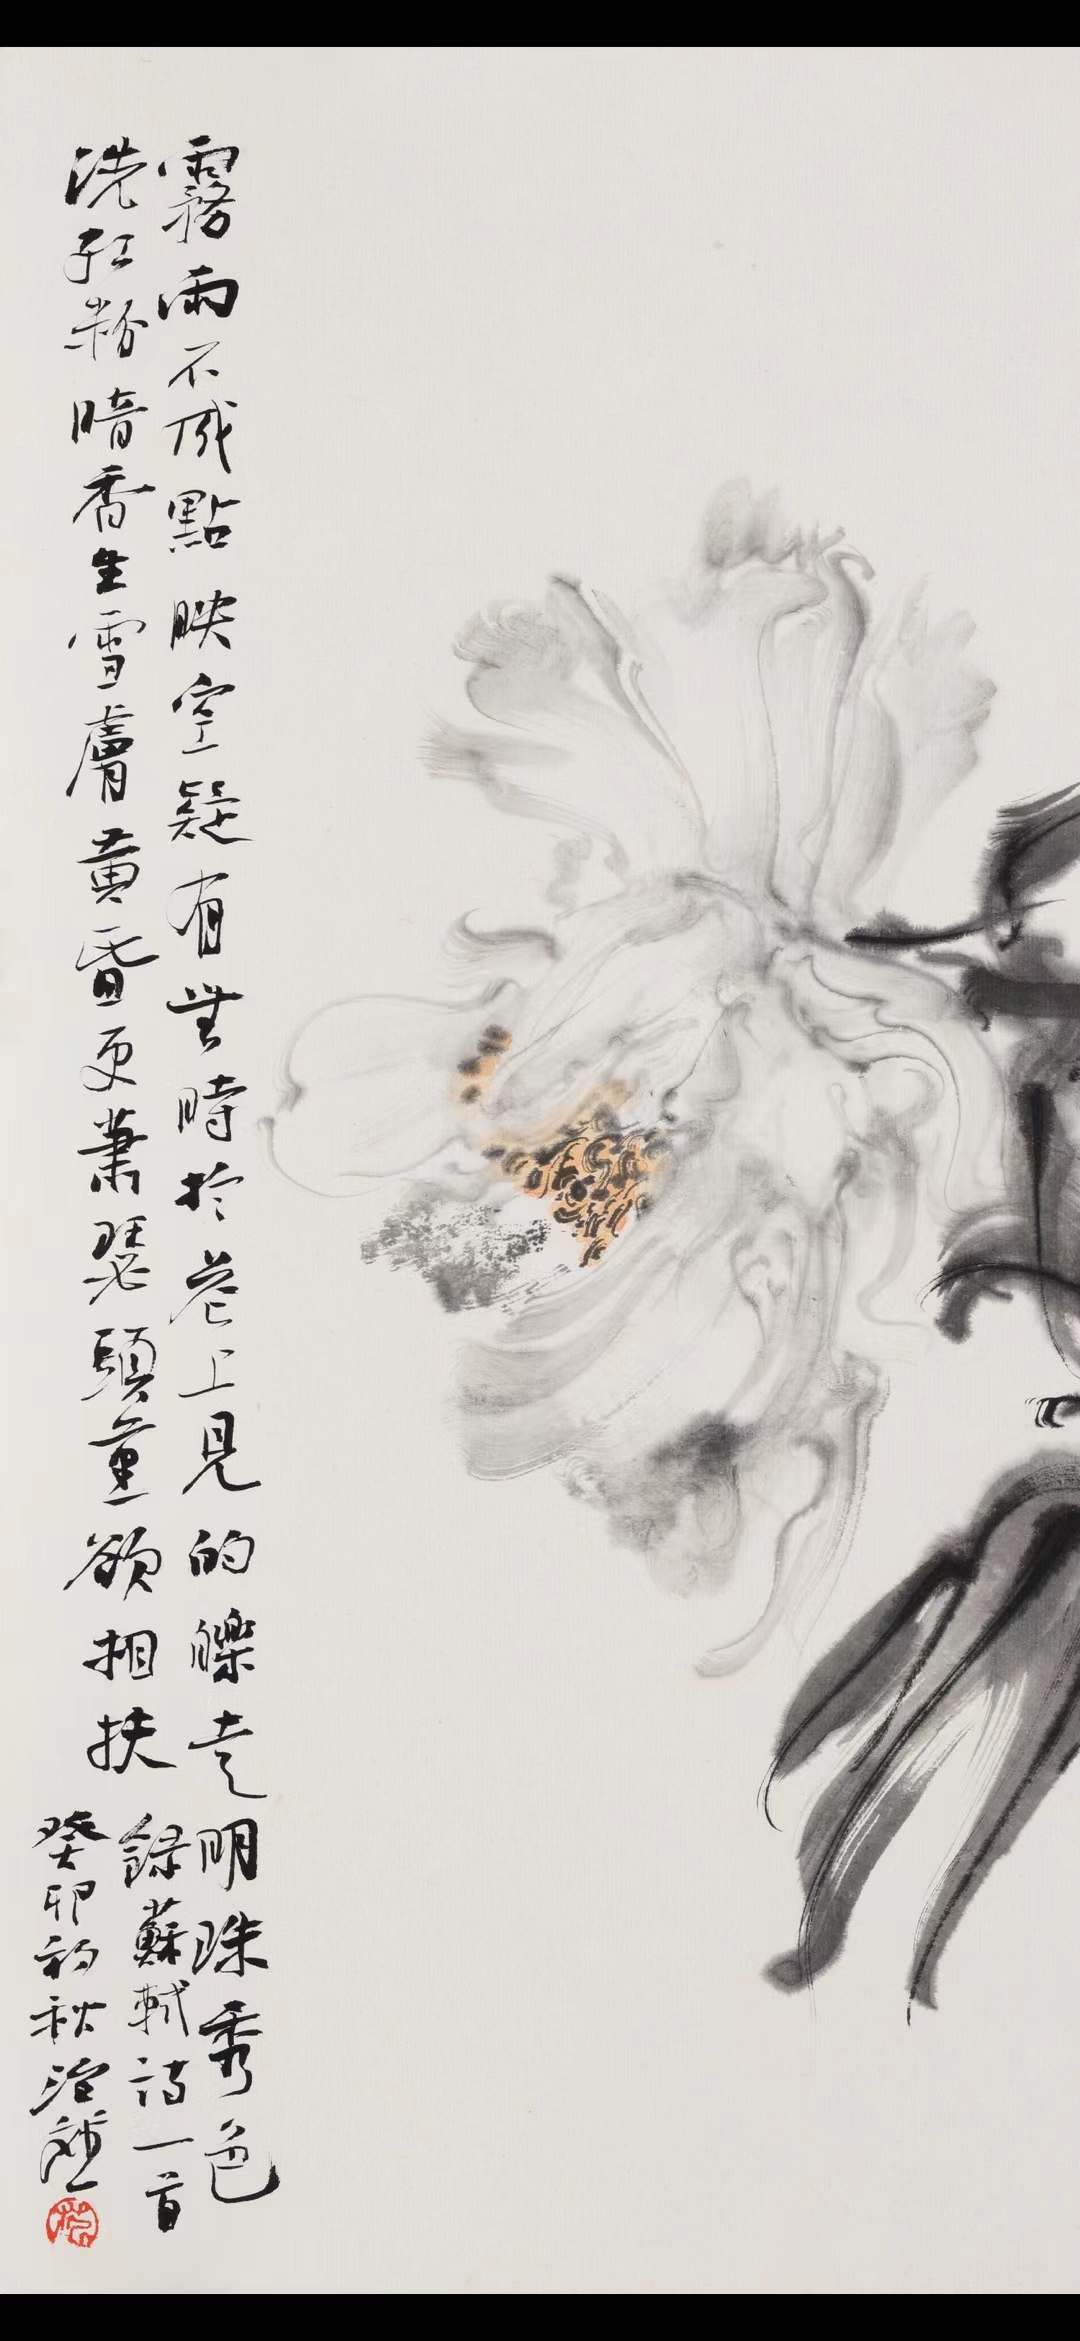 霧雨不成點映空疑有無時於花上見的皪走明珠秀色
洗紅粉暗香生雪膚黃昏更蕭瑟頭重欲相扶
錄蘇軾詩一首
癸卯初秋治